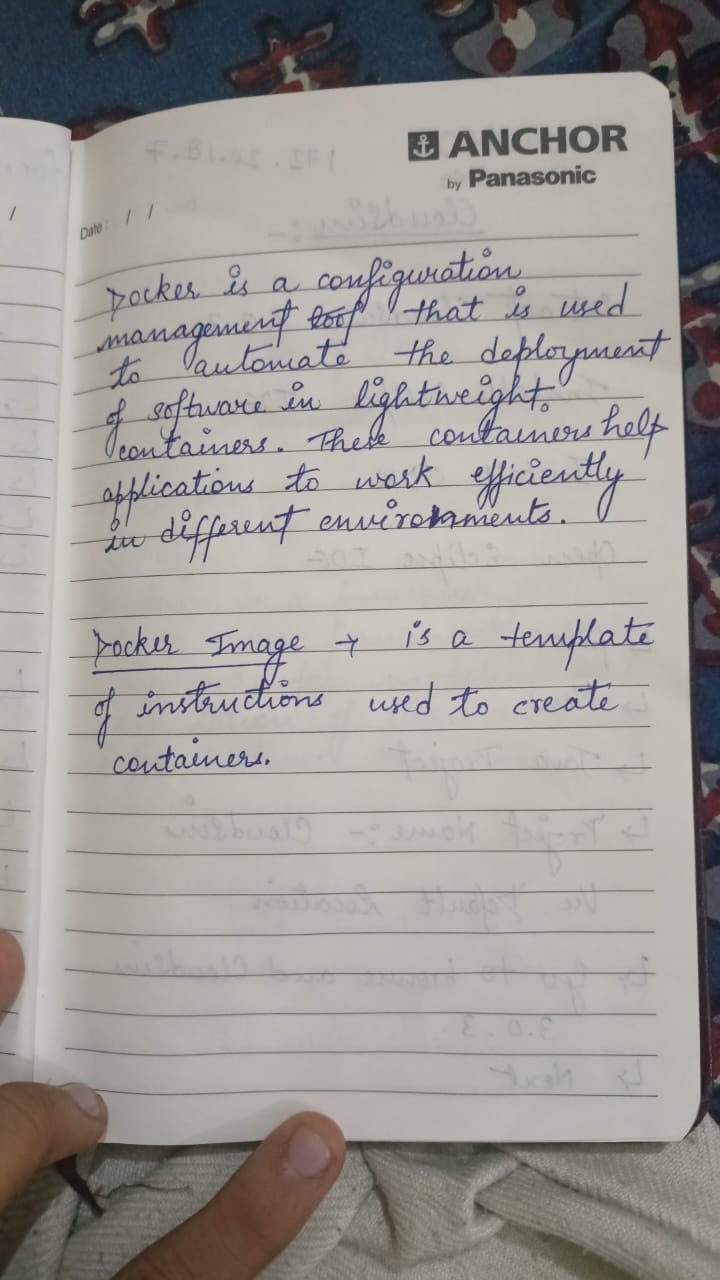 ANCHOR
by Panasonic
Date: / /
Docker is a configuration
management tool that is used
to automate the deployment
of software in lightweight
containers. These containers help
applications to work efficiently
in different environaments.
Docker Image → is a template
of instructions used to create
containers.